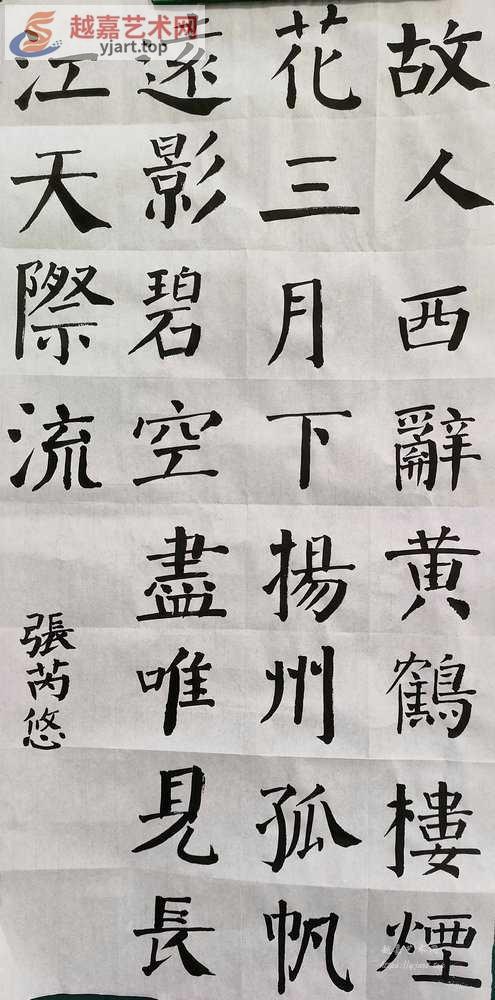 越嘉艺术网
yjart.top
故人西辭黄鶴樓煙
花三月下揚州孤帆
遠影碧空盡唯見長
江天際流
張芮悠